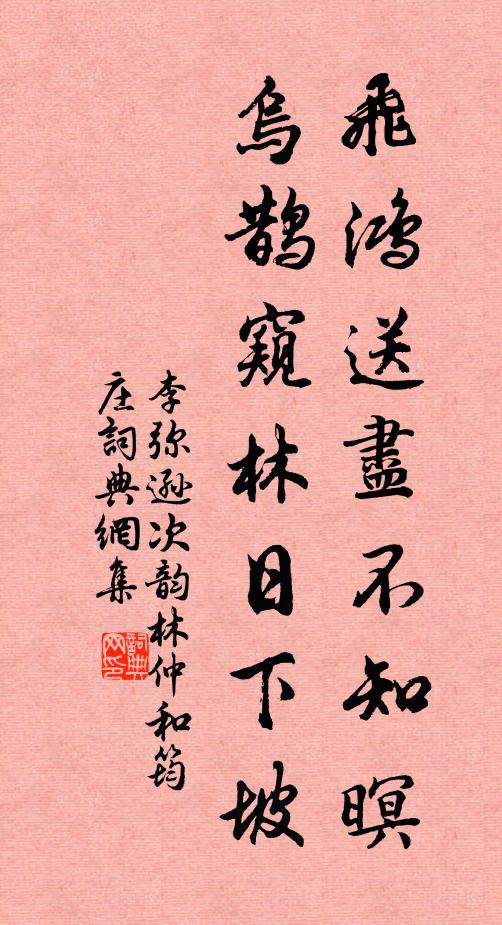 飛鴻送盡不知暝
烏鵲窺林日下坡
李弥遜次韵林仲和筠
庄詞典網集
詞典
网印